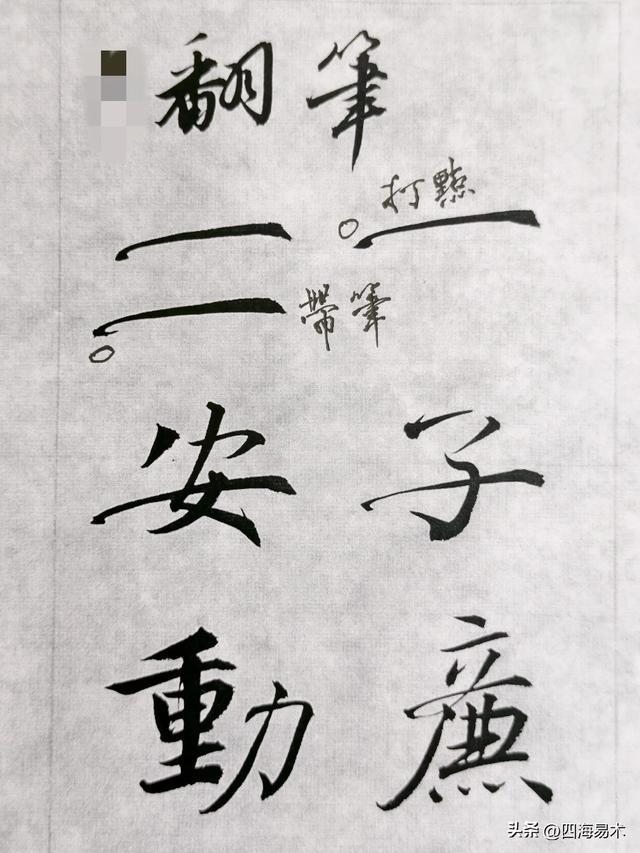 翻筆
打點
帶筆
安子
動廉
头条 @四海易木